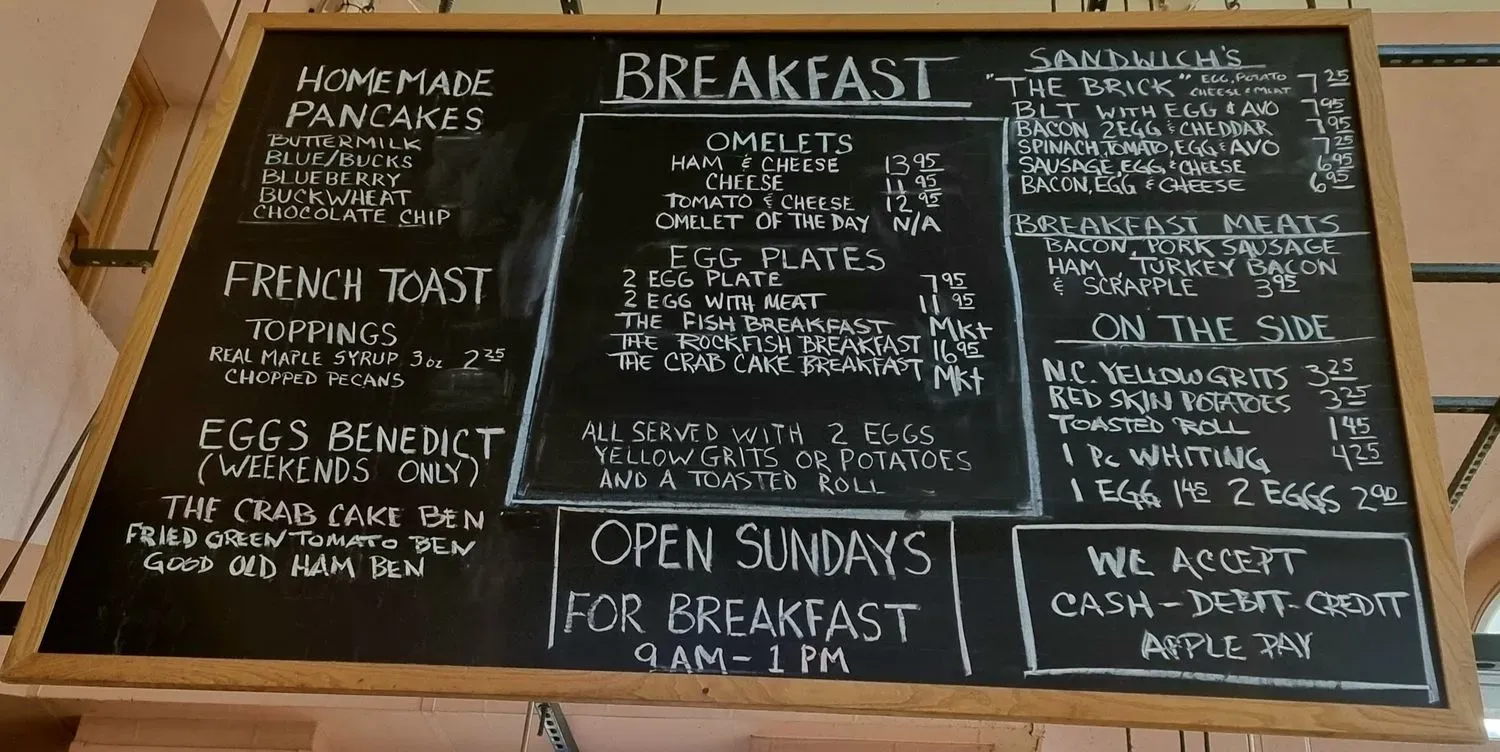 HOMEMADE
PANCAKES
BUTTERMILK
BLUE/BUCKS
BLUEBERRY
BUCKWHEAT
CHOCOLATE CHIP
FRENCH TOAST
TOPPINGS
REAL MAPLE SYRUP 3oz 2 25
CHOPPED PECANS
EGGS BENEDICT
(WEEKENDS ONLY)
THE CRAB CAKE BEN
FRIED GREEN TOMATO BEN
GOOD OLD HAM BEN
BREAKFAST
OMELETS
HAM & CHEESE 13 95
CHEESE 11 95
TOMATO & CHEESE 12 95
OMELET OF THE DAY N/A
EGG PLATES
2 EGG PLATE 7 95
2 EGG WITH MEAT 11 95
THE FISH BREAKFAST Mkt
THE ROCKFISH BREAKFAST 16 95
THE CRAB CAKE BREAKFAST Mkt
ALL SERVED WITH 2 EGGS
YELLOW GRITS OR POTATOES
AND A TOASTED ROLL
OPEN SUNDAYS
FOR BREAKFAST
9 AM - 1 PM
SANDWICH'S
"THE BRICK" EGG, POTATO CHEESE & MEAT 7 25
BLT WITH EGG & AVO 7 95
BACON 2EGG & CHEDDAR 7 95
SPINACH, TOMATO, EGG & AVO 7 25
SAUSAGE, EGG, & CHEESE 6 95
BACON, EGG & CHEESE 6 95
BREAKFAST MEATS
BACON, PORK SAUSAGE
HAM, TURKEY BACON
& SCRAPPLE 3 95
ON THE SIDE
N.C. YELLOW GRITS 3 25
RED SKIN POTATOES 3 25
TOASTED ROLL 1 45
1 Pc WHITING 4 25
1 EGG 1 45 2 EGGS 2 90
WE ACCEPT
CASH - DEBIT - CREDIT
APPLE PAY